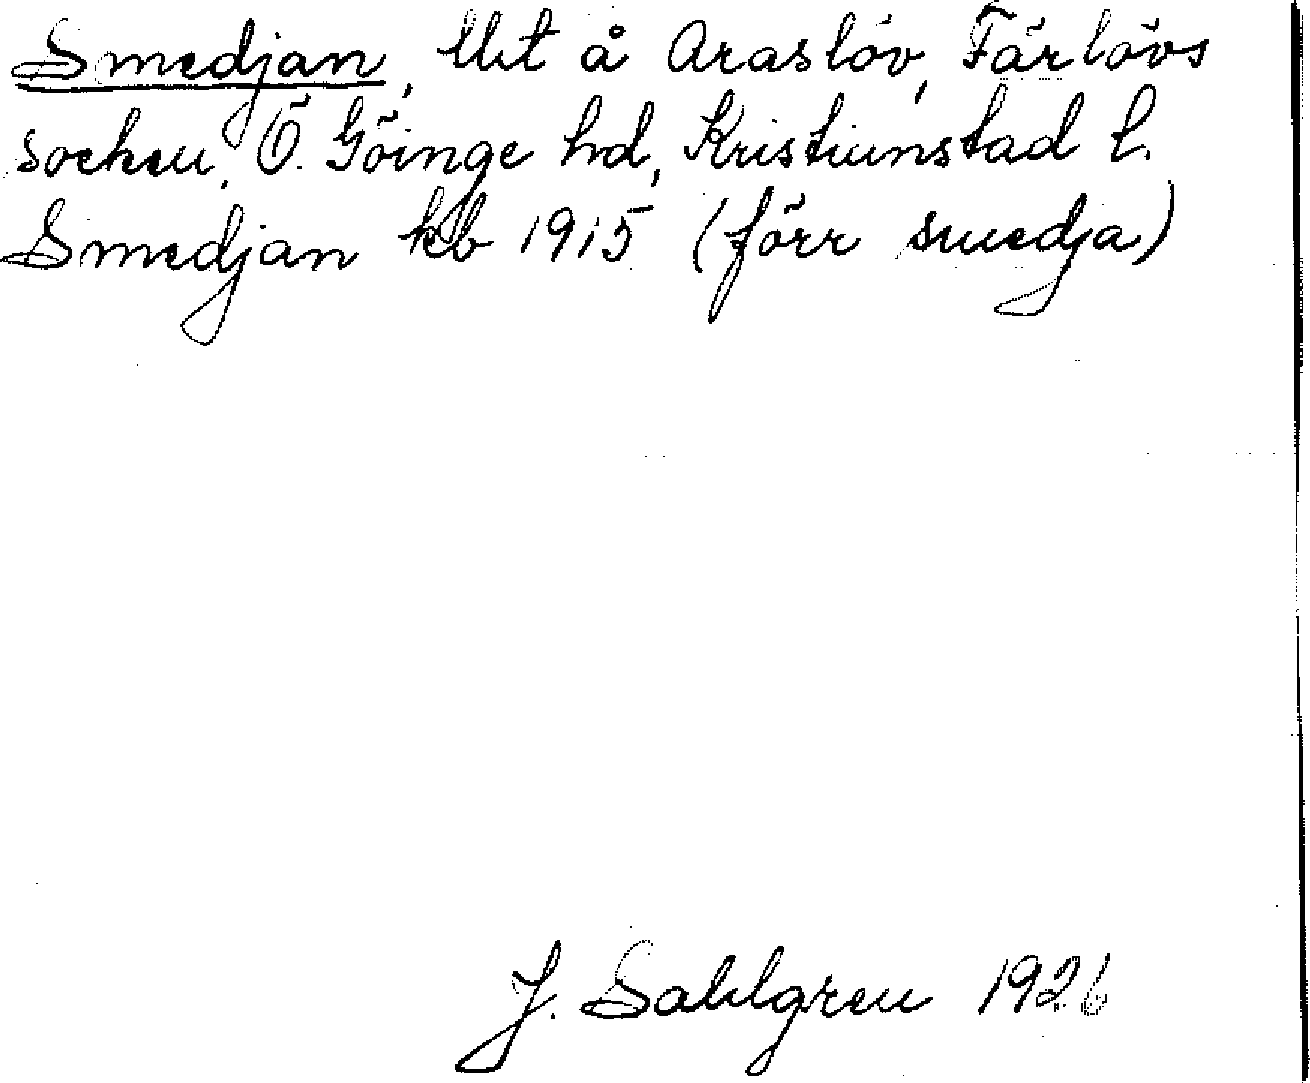 Smedjan, lht å Araslöv, Färlövs
socken, Ö. Göinge hd, Kristianstad l.
Smedjan kb 1915 (förr smedja)
J. Sahlgren 1926